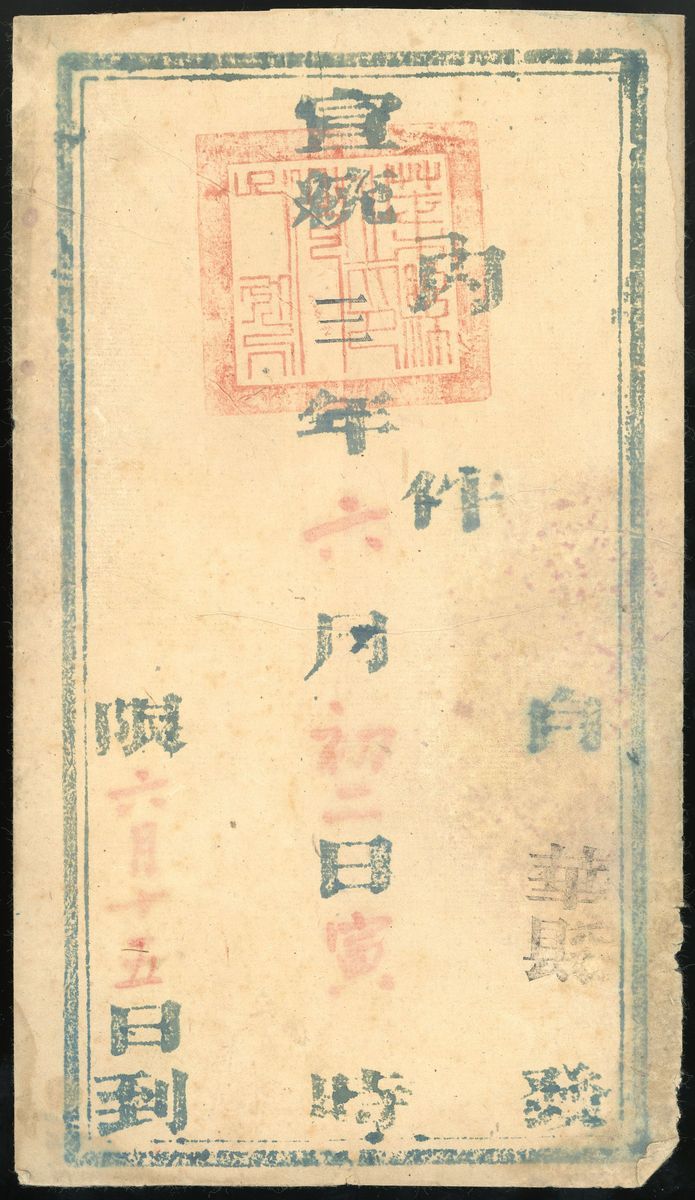 自華縣發
內件
宣統三年六月初二日寅時
限六月十五日到